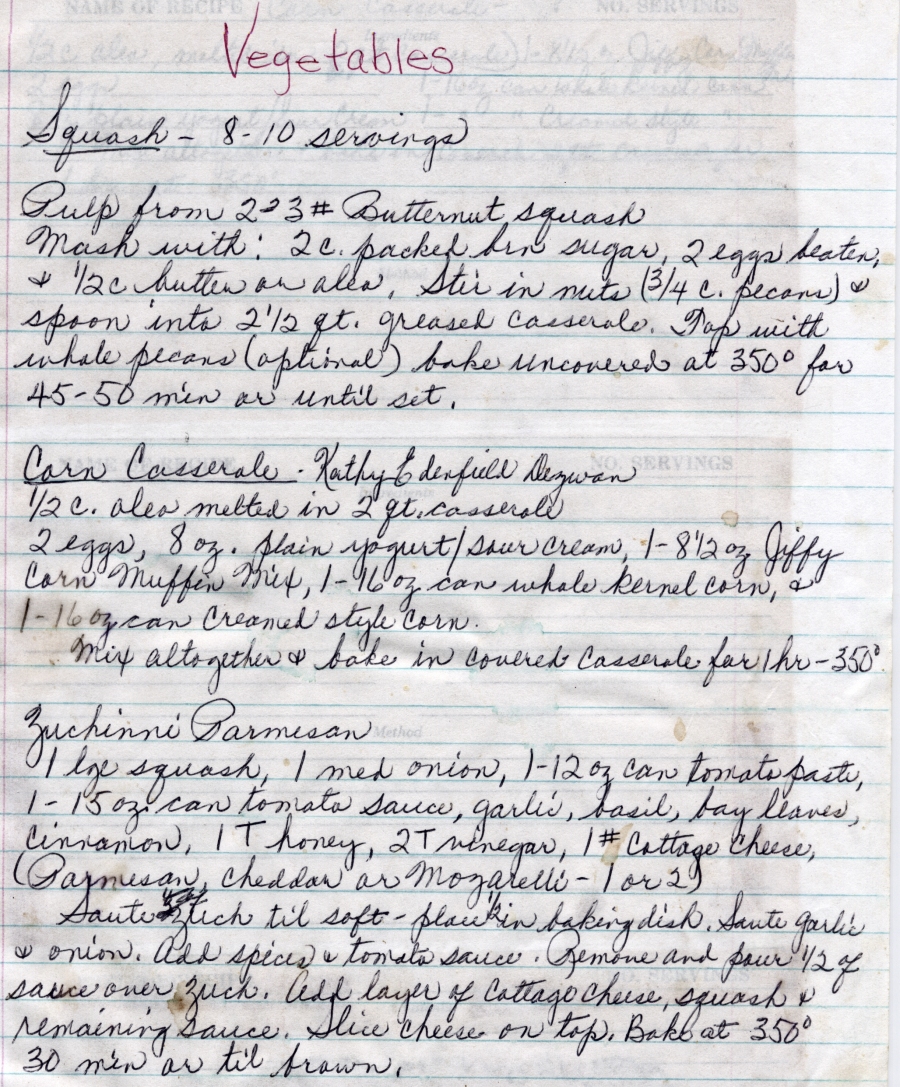 Vegetables
Squash - 8-10 servings
Pulp from 2-3# Butternut squash
Mash with: 2c. packed brn sugar, 2 eggs beaten,
& 1/2c butter or oleo. Stir in nuts (3/4 c. pecans) &
spoon into 2 1/2 qt. greased casserole. Top with
whole pecans (optional) bake uncovered at 350° for
45-50 min or until set.
Corn Casserole - Kathy Edenfield Dezwan
1/2 c. oleo melted in 2 qt. casserole
2 eggs, 8 oz. plain yogurt/sour cream, 1-8 1/2 oz Jiffy
Corn Muffin Mix, 1-16 oz can whole kernel corn, &
1-16 oz can Creamed style corn.
Mix altogether & bake in covered casserole for 1 hr - 350°
Zuchinni Parmesan
1 lge squash, 1 med onion, 1-12 oz can tomato paste,
1-15 oz. can tomato sauce, garlic, basil, bay leaves,
cinnamon, 1 T honey, 2T vinegar, 1# Cottage Cheese,
(Parmesan, cheddar or Mozarelli - 1 or 2)
Saute Zuch til soft - place 1/2 in baking dish. Saute garlic
& onion. Add spices & tomato sauce. Remove and pour 1/2 of
sauce over zuch. Add layer of Cottage Cheese, squash &
remaining sauce. Slice cheese on top. Bake at 350°
30 min or til brown.